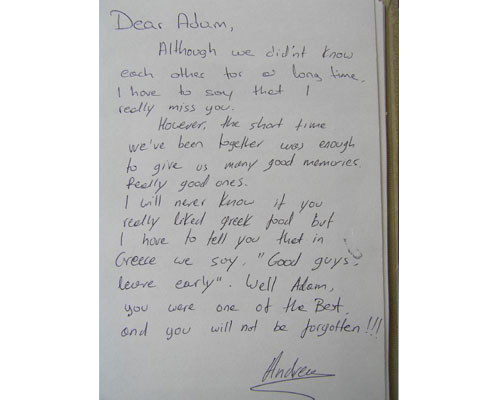 Dear Adam,
Although we did'nt know
each other for a long time.
I have to say that I
really miss you.
However, the short time
we've been together was enough
to give us many good memories.
Really good ones.
I will never know if you
really liked greek food but
I have to tell you that in
Greece we say. "Good guys,
leave early". Well Adam,
you were one of the Best.
and you will not be forgotten!!!
Andreas